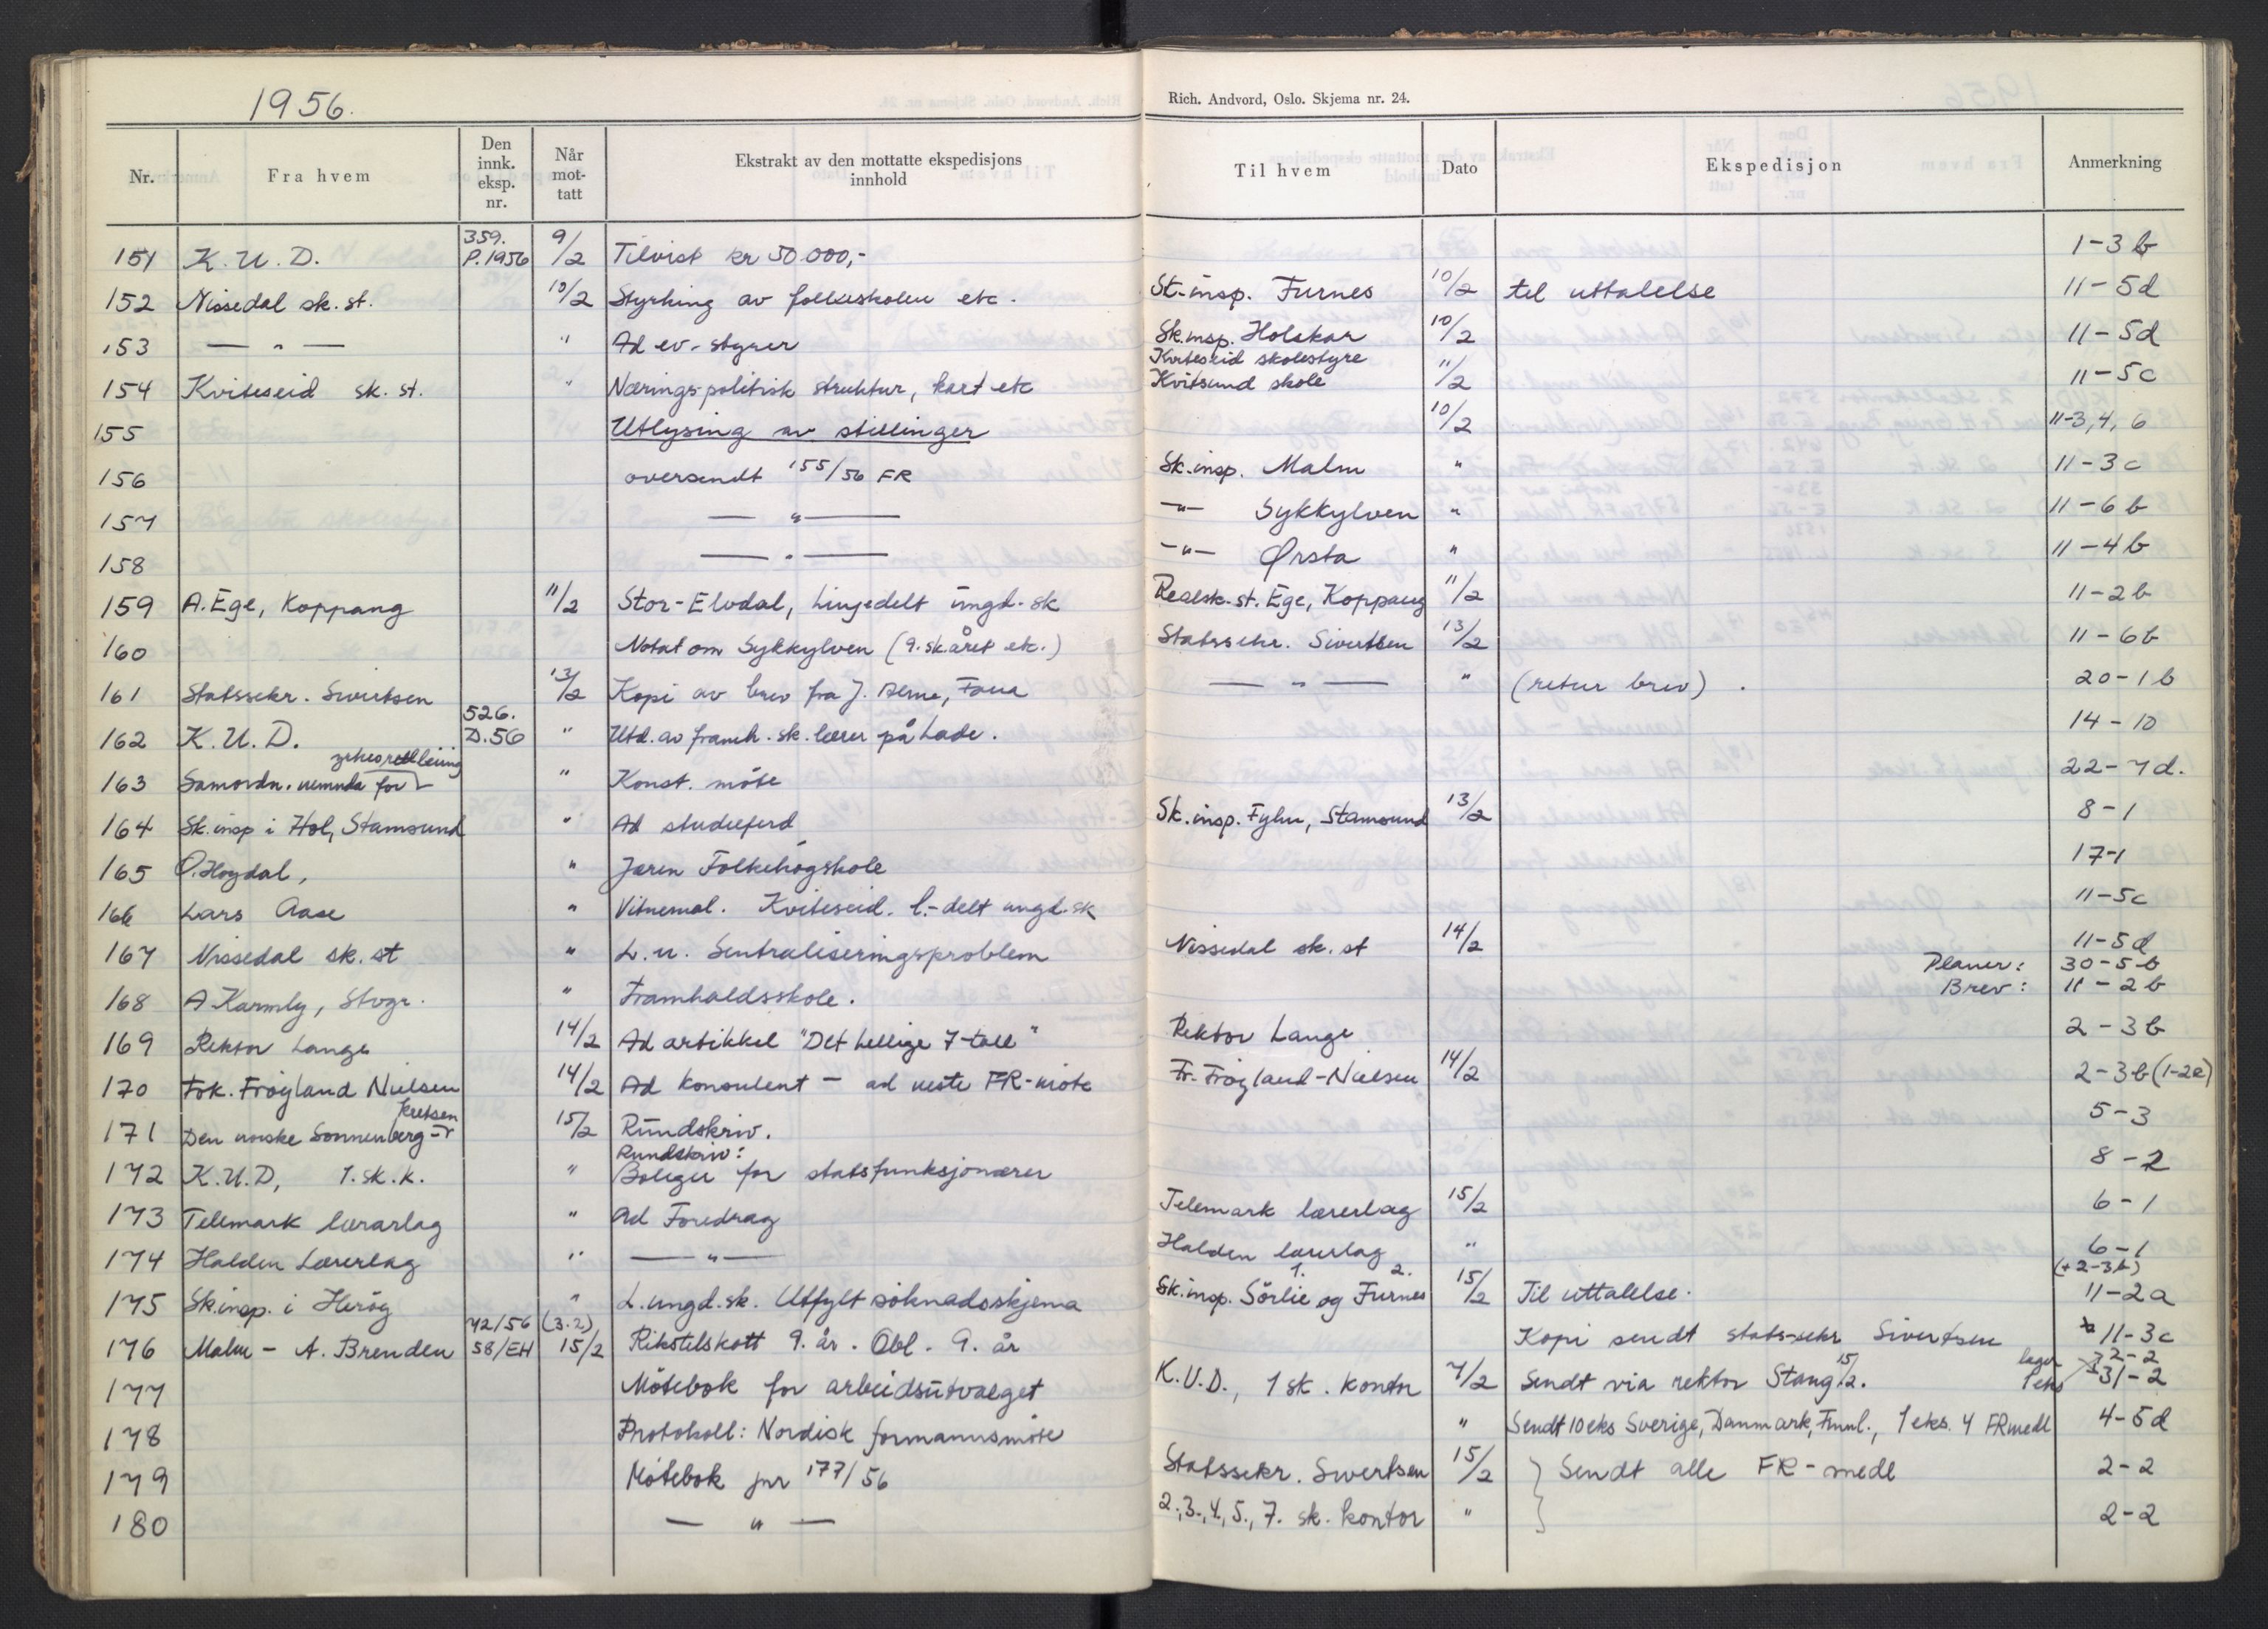 1956.
Rich. Andvord, Oslo. Skjema nr. 24.
Nr. Fra hvem Den innk. eksp. nr. Når mot-tatt Ekstrakt av den mottatte ekspedisjons innhold Til hvem Dato Ekspedisjon Anmerkning
151 K.U.D. 359. P.1956 9/2 Tilvist kr 50.000,- 1-3 b
152 Nissedal sk. st. 10/2 Styrking av folkeskolen etc. St.insp. Furnes 10/2 til uttalelse 11-5d
153 — " — " Ad ev. styrer Sk.insp. Holskar 10/2 11-5d
154 Kviteseid sk. st. " Næringspolitisk struktur, kart etc Kviteseid skolestyre Kvitsund skole 11/2 11-5c
155 Utlysing av stillinger 10/2 11-3,4, 6
156 oversendt 155/56 FR Sk.insp. Malm " 11-3c
157 — " — -"- Sykkylven " 11-6 b
158 — " — -"- Ørsta " 11-4b
159 A. Ege, Koppang 11/2 Stor-Elvdal, Linjedelt ungd.sk Realsk.st. Ege, Koppang 11/2 11-2b
160 Notat om Sykkylven (9.skåret etc.) Statssekr. Sivertsen 13/2 11-6b
161 Statssekr. Sivertsen 13/2 Kopi av brev fra J. , Fana — " — " (retur brev). 20-1b
162 K.U.D. 526. D.56 " Utd. av framh.sk.lærer på Lade. 14-10
163 Samordn.nemnda for yrkesrettleiing " Konst. møte 22-7d.
164 Sk.insp i Hol, Stamsund " Ad studieferd Sk.insp. Fyhn, Stamsund 13/2 8-1
165 O. Høydal, " Jæren Folkehøgskole 17-1
166 Lars Aase " Vitnemål. Kviteseid. l.-delt ungd.sk 11-5c
167 Nissedal sk. st " L.u. Sentraliseringsproblem Nissedal sk. st 14/2 11-5d
168 A Karmly, Stvgr. " Framhaldsskole. Planer: 30-5b
Brev: 11-2b
169 Rektor Lange 14/2 Ad artikkel "Det hellige 7-tall" Rektor Lange 2-3b
170 Frk. Frøyland Nielsen 14/2 Ad konsulent - ad neste FR-møte Fr. Frøyland-Nielsen 14/2 2-3b(1-2e)
171 Den norske Sonnenberg-kretsen 15/2 Rundskriv. 5-3
172 K.U.D, 1. sk.k. " Rundskriv: Boliger for statsfunksjonærer 8-2
173 Telemark lærarlag " Ad Foredrag Telemark lærerlag 15/2 6-1
174 Halden Lærerlag " — " — Halden lærerlag " 6-1 (+2-3b)
175 Sk.insp. i Herøy " L.ungd.sk. Utfylt søknadsskjema Sk.insp. 1. Sørlie og 2. Furnes 15/2 Til uttalelse. 11-2a
176 Malm - A. Brenden 42/56 58/EH (3.2) 15/2 Rikstilskott 9. år. Obl. 9. år Kopi sendt stats-sekr Sivertsen 11-3c
177 Møtebok for arbeidsutvalget K.U.D., 1 sk. kontor 7/2 Sendt via rektor Stang 15/2. lager 32-2 1 eks 31-2
178 Protokoll: Nordisk formannsmøte " Sendt 10 eks Sverige, Danmark, Finnl., 1 eks. 4 FRmedl 4-5d
179 Møtebok jnr 177/56 Statssekr. Sivertsen 15/2 } Sendt alle FR-medl 2-2
180 — " — 2.,3.,4., 5., 7. sk. kontor " } 2-2